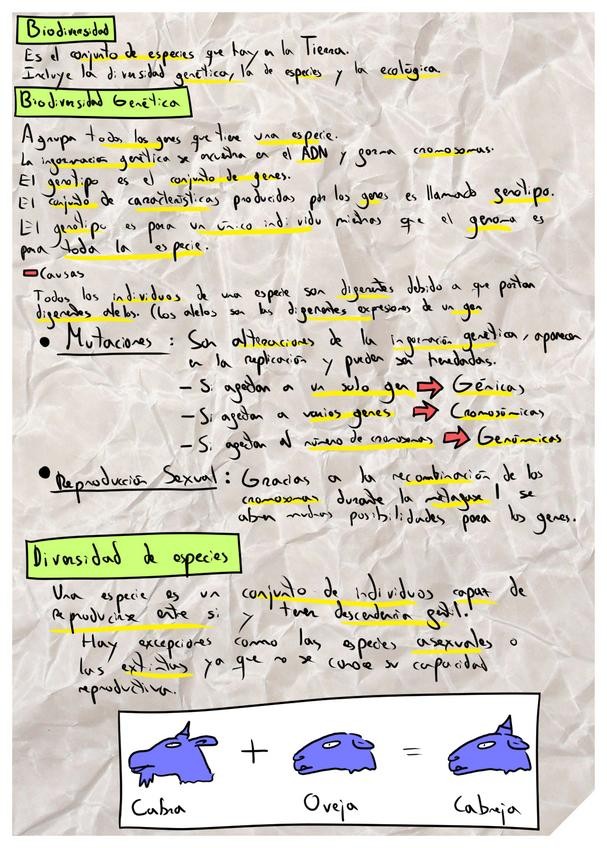 Biodiversidad
Es el conjunto de especies que hay en la Tierra.
Incluye la diversidad genética, la de especies y la ecológica
Biodiversidad Genética
Agrupa todos los genes que tiene una especie.
La información genética se encuentra en el ADN y forma cromosomas.
El genotipo es el conjunto de genes.
El conjunto de características producidas por los genes es llamado genotipo.
El genotipo es para un único individu mientras que el genoma es
para toda la especie.
Causas
Todos los individuos de una especie son diferentes debido a que portan
diferentes alelos. (Los alelos son las diferentes expresiones de un gen
• Mutaciones : Son alteraciones de la información genética, aparecen
en la replicación y pueden ser heredadas.
- Si afectan a un solo gen ➡ Génicas
- Si afectan a varios genes ➡ Cromosómicas
- Si afectan al número de cromosomas ➡ Genómicas
• Reproducción Sexual : Gracias a la recombinación de los
cromosomas durante la metafase I se
abren muchas posibilidades para los genes.
Diversidad de especies
Una especie es un conjunto de individuos capaz de
reproducirse entre si y tener descendencia fértil.
Hay excepciones como las especies asexuales o
las extintas ya que no se conoce su capacidad
reproductiva.
+ =
Cabra Oveja Cabreja